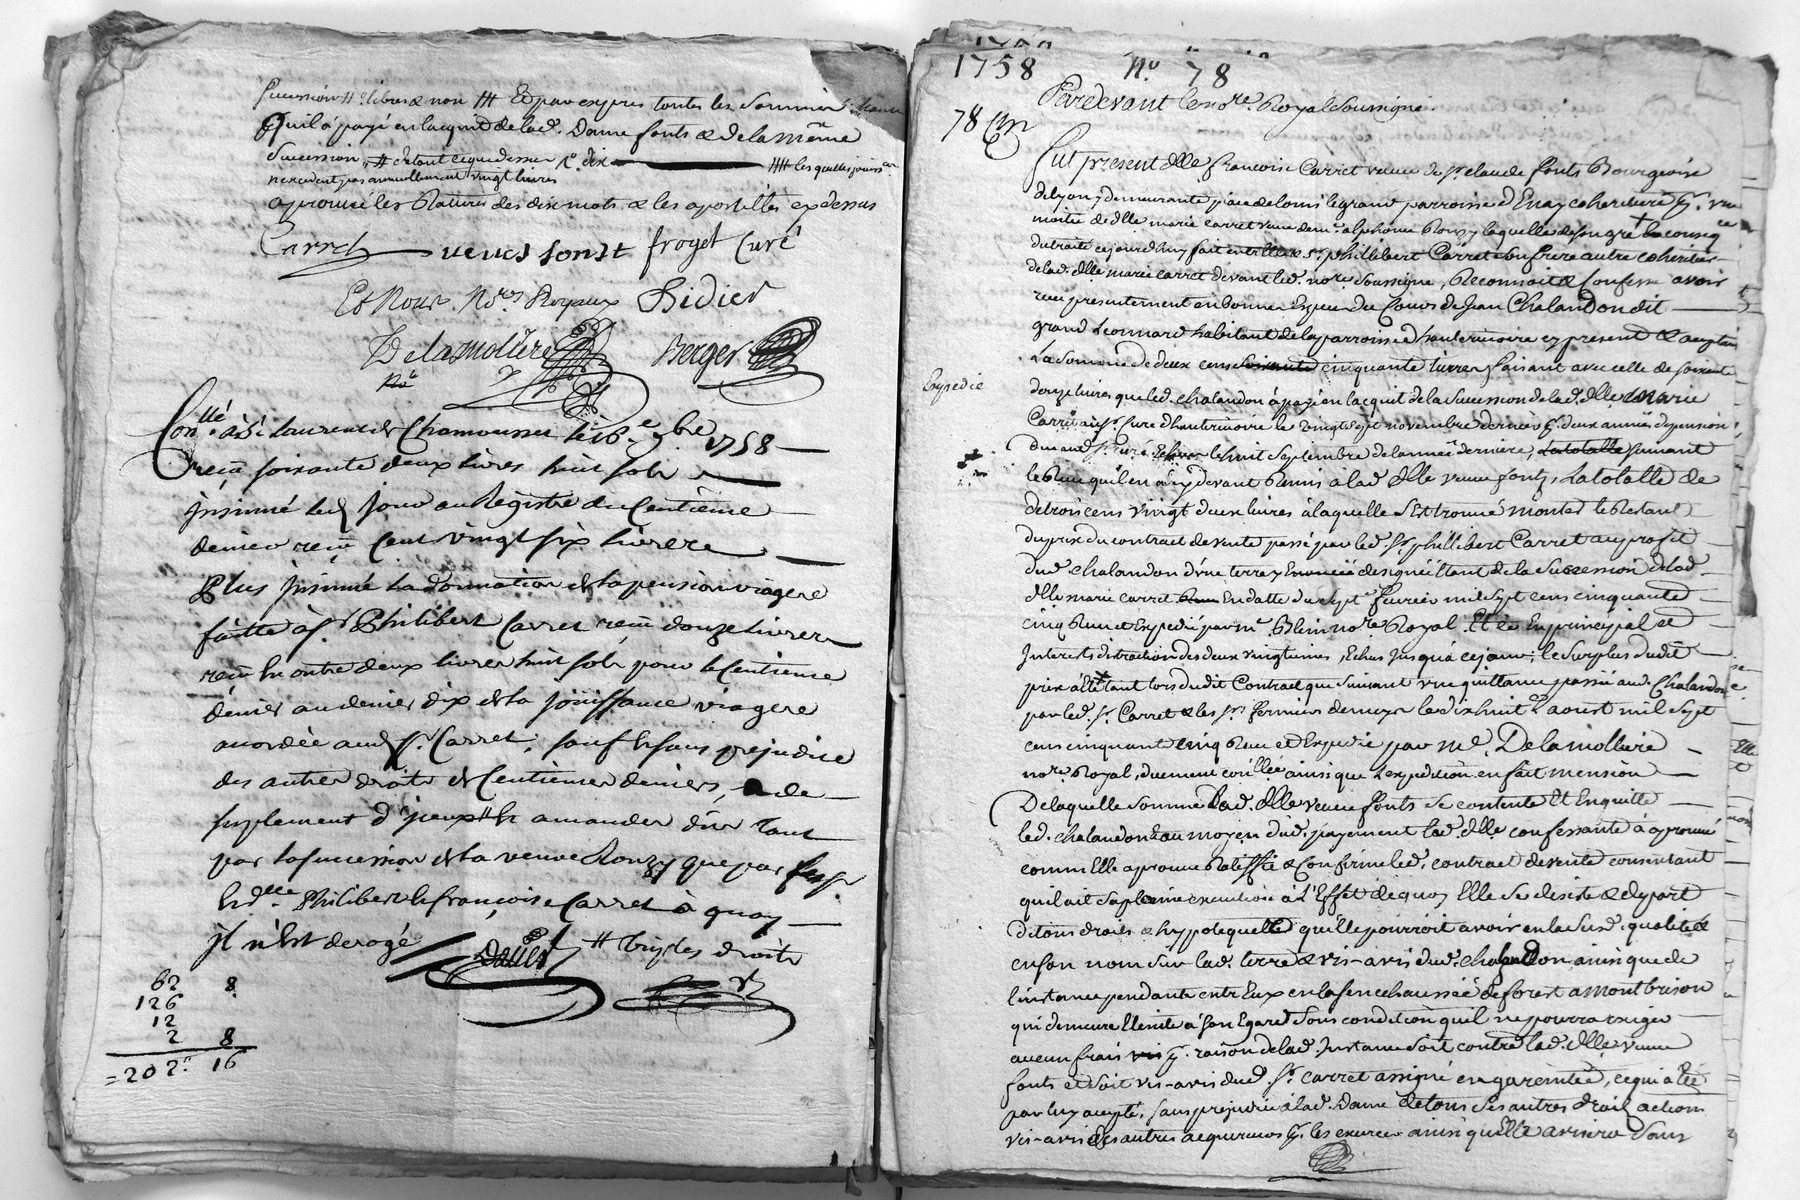 succession # libres & non ## Et par expres toutes les sommes
Qu'il a payé en lacquit de lad. Dame fonts & de la même
succession, # de tout ce que dessus #### les quelles jouiss
n'excedent pas annuellement vingt livres
aprouvé les Ratures des dix mots & les apostilles cy dessus
Carret veuve fonst froget Curé
Et Nous No.res Royaux Didier
Delamollière Berger
No.re
Con.llé à S.t Laurent de Chamousset le 16.e 7bre 1758
reçu soixante deux livres huit sols
Insinué led. jour au Registre du Centième
denier reçu Cent vingt six livres
Plus Insinué la donnation de la pension viagere
faitte à S.r Philibert Carret reçu douze livres
reçu En outre deux livres huit sols pour le Centieme
denier au denier dix de la joüissance viagere
accordée aud. S.r Carret, sauf & sans prejudice
des autres droits de Centiemes deniers, & de
suplement d'iceux # & amandes dûs tant
par la succession de la veuve Rouzy que par
lesd. Philibert & françoise Carret à quoy
il n'Est derogé # tous les droits
62 8
126
12
2 8
= 202." 16
1758 N.o 78
Pardevant le no.re Royal soussigné
78
fut present d.lle françoise Carret veuve de s.r claude fonts Bourgeoise
de lyon, y demeurante place de louis le grand parroisse d'Enay coheritiere p.r une
moitié de d.lle marie carret veuve de m.e alphonse Rouzy laquelle de son gré
du traité cejourd'huy fait entr'elle & s.r philibert Carret son frere autre coheritier
de lad. d.lle marie carret devant led. no.re soussigné, Reconnoit & Confesse avoir
reçu presentement en bonnes Especes du Cours de Jean Chalandon dit
grand Leonnard habitant de la parroisse d'hauterivoire cy present & acceptant
La somme de deux cens cinquante livres faisant avec celle de soixante
Expedié
douze livres que led. chalandon a payé en lacquit de la succession de lad. d.lle marie
Carret au s.r Curé d'hauterivoire le vingt sept novembre dernier p.r deux années de pension
duës aud. s.r curé le huit septembre de lannée derniere, suivant
le Reçu qu'il en a cy devant Remis à lad. d.lle veuve fonts, La totalle de
de trois cens vingt deux livres à laquelle s'Est trouvé monter le Restant
du prix du contract de vente passé par led. s.r philibert Carret au profit
dud. chalandon d'une terre y Enoncée designée Etant de la succession de lad.
d.lle marie carret En datte du sept fevrier mil sept cens cinquante
cinq Reçu et Expedié par m.e Blein no.re Royal Et ce En principal et
Interests distraction des deux vingtiemes, Echus jusqu'à ce jour, le surplus dudit
prix a été tant lors dudit Contract que suivant une quittance passée aud. Chalandon
par led. s.r Carret & les s.rs fermiers de meys le dixhuit aoust mil sept
cens cinquante cinq Reçu et Expedié par m.e Delamolliere
no.re Royal, duement con.llée ainsi que l'expedition en fait mension
De laquelle somme lad. d.lle veuve fonts se contente Et En quitte
led. chalandon & au moyen dud. payement lad. d.lle confessante a aprouvé
comm'Elle aprouve Ratiffie & Confirme led. contract de vente consentant
qu'il ait sa pleine execution à l'Effet de quoy Elle se desiste & depart
de tous droits & hypoteques qu'elle pourroit avoir en lad. qualité &
en son nom sur lad. terre & vis-avis dud. chalandon ainsi que de
l'instance pendante entr'Eux en la senechaussée de forest a Montbrison
qui demeure Eteinte à son Egard sous condition qu'il ne pourra exiger
aucun frais p.r raison de lad. Instance soit contre lad. d.lle veuve
fonts et soit vis-avis dud. s.r carret assigné en garentie, ce qui a été
par luy accepté, sans prejudice à lad. Dame de tous ses autres droits actions
vis-avis des autres acquereurs p.r les exercer ainsi qu'elle avisera sous